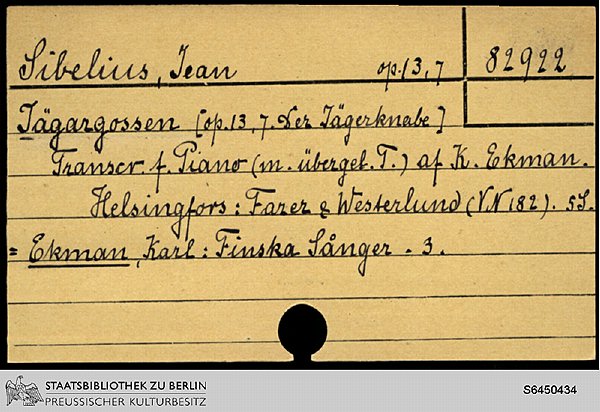 Sibelius, Jean op. 13, 7 82922
Jägargossen [op. 13, 7. Der Jägerknabe]
Transcr. f. Piano (m. übergel. T.) af K. Ekman.
Helsingfors: Fazer & Westerlund (VN 182). 5 S.
= Ekman, Karl: Finska Sånger. 3.
STAATSBIBLIOTHEK ZU BERLIN
PREUSSISCHER KULTURBESITZ
S6450434